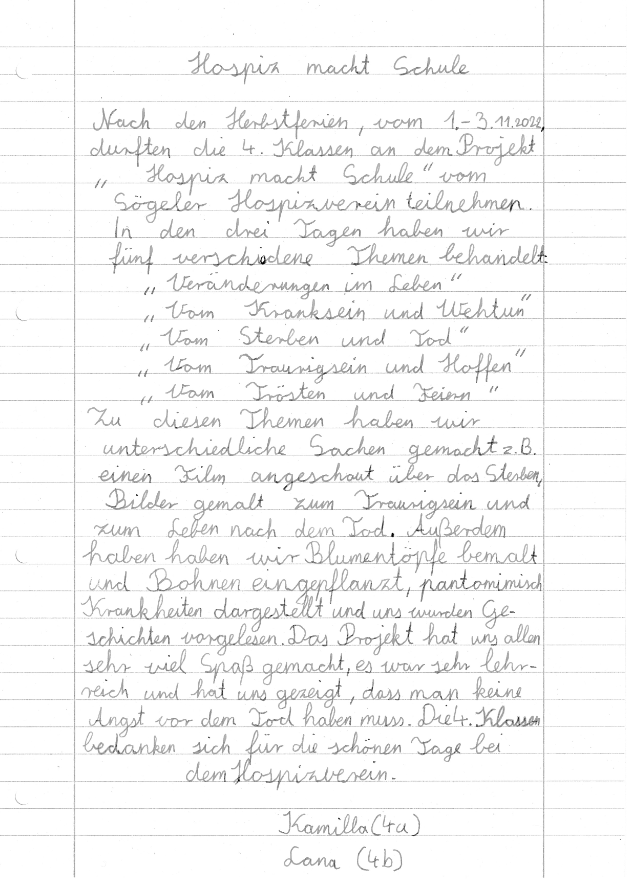 Hospiz macht Schule
Nach den Herbstferien, vom 1.-3.11.2022,
durften die 4. Klassen an dem Projekt
„Hospiz macht Schule“ vom
Sögeler Hospizverein teilnehmen.
In den drei Tagen haben wir
fünf verschidene Themen behandelt:
„Veränderungen im Leben“
„Vom Kranksein und Wehtun“
„Vom Sterben und Tod“
„Vom Traurigsein und Hoffen“
„Vom Trösten und Feiern“
Zu diesen Themen haben wir
unterschiedliche Sachen gemacht z.B.
einen Film angeschaut über das Sterben,
Bilder gemalt zum Traurigsein und
zum Leben nach dem Tod. Außerdem
haben haben wir Blumentöpfe bemalt
und Bohnen eingepflanzt, pantomimisch
Krankheiten dargestellt und uns wurden Ge-
schichten vorgelesen. Das Projekt hat uns allen
sehr viel Spaß gemacht, es war sehr lehr-
reich und hat uns gezeigt, dass man keine
Angst vor dem Tod haben muss. Die 4. Klassen
bedanken sich für die schönen Tage bei
dem Hospizverein.
Kamilla (4a)
Lana (4b)